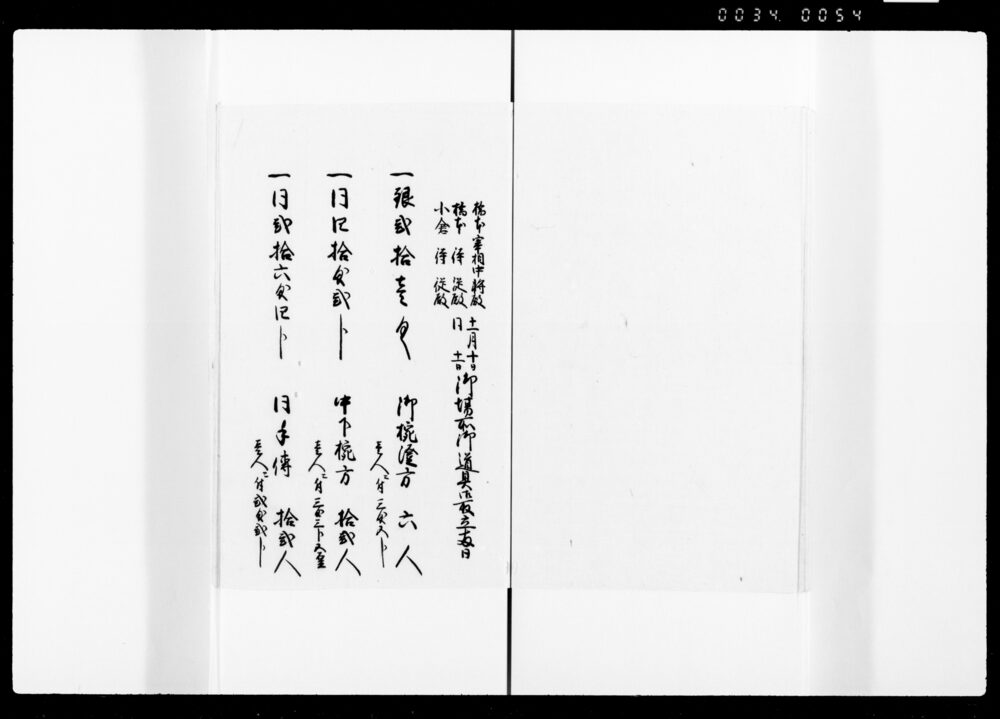 0034. 0054
橋本宰相中将殿 十一月十日
橋本侍従殿 同 十一日 御場所御道具取立
小倉侍従殿
一銀弐拾壱匁 御椀方 六人
壱人ニ付三匁五分
一同四拾匁弐分 中下椀方 拾弐人
壱人ニ付三匁三分五厘
一同弐拾六匁四分 同手傳 拾弐人
壱人ニ付弐匁弐分